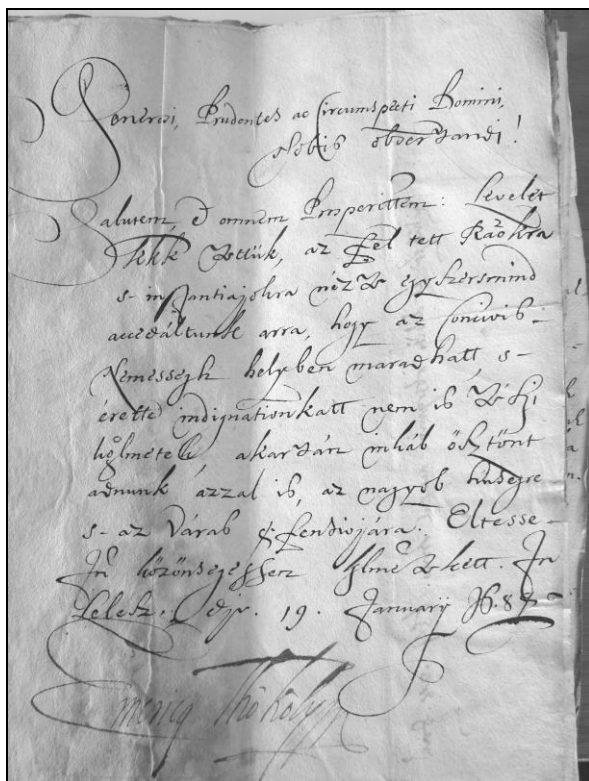 Generosi, Prudentes ac Circumspecti Domini,
Nobis observandi!
Salutem, et omnem Prosperitatem: Levelét
Kkk vettük, az fel tett Rátiókra
s- instantiajokra nézve egyszersmind
accedáltunk arra, hogy az Concivis-
Nemessegh helyben maradhatt, s-
érette indignationkatt nem is
akarván inkáb ösztönt
adnunk azzal is, az nagyob hűsegre
s- az Várab defensiojára. Eltesse-
Isten közönségessen In
Lelesz, die. 19. January
Emericg Thököly